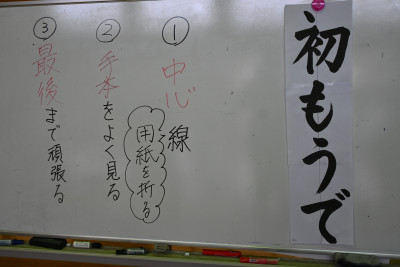 初もうで
① 中心線
用紙を折る
② 手本をよく見る
③ 最後まで頑張る